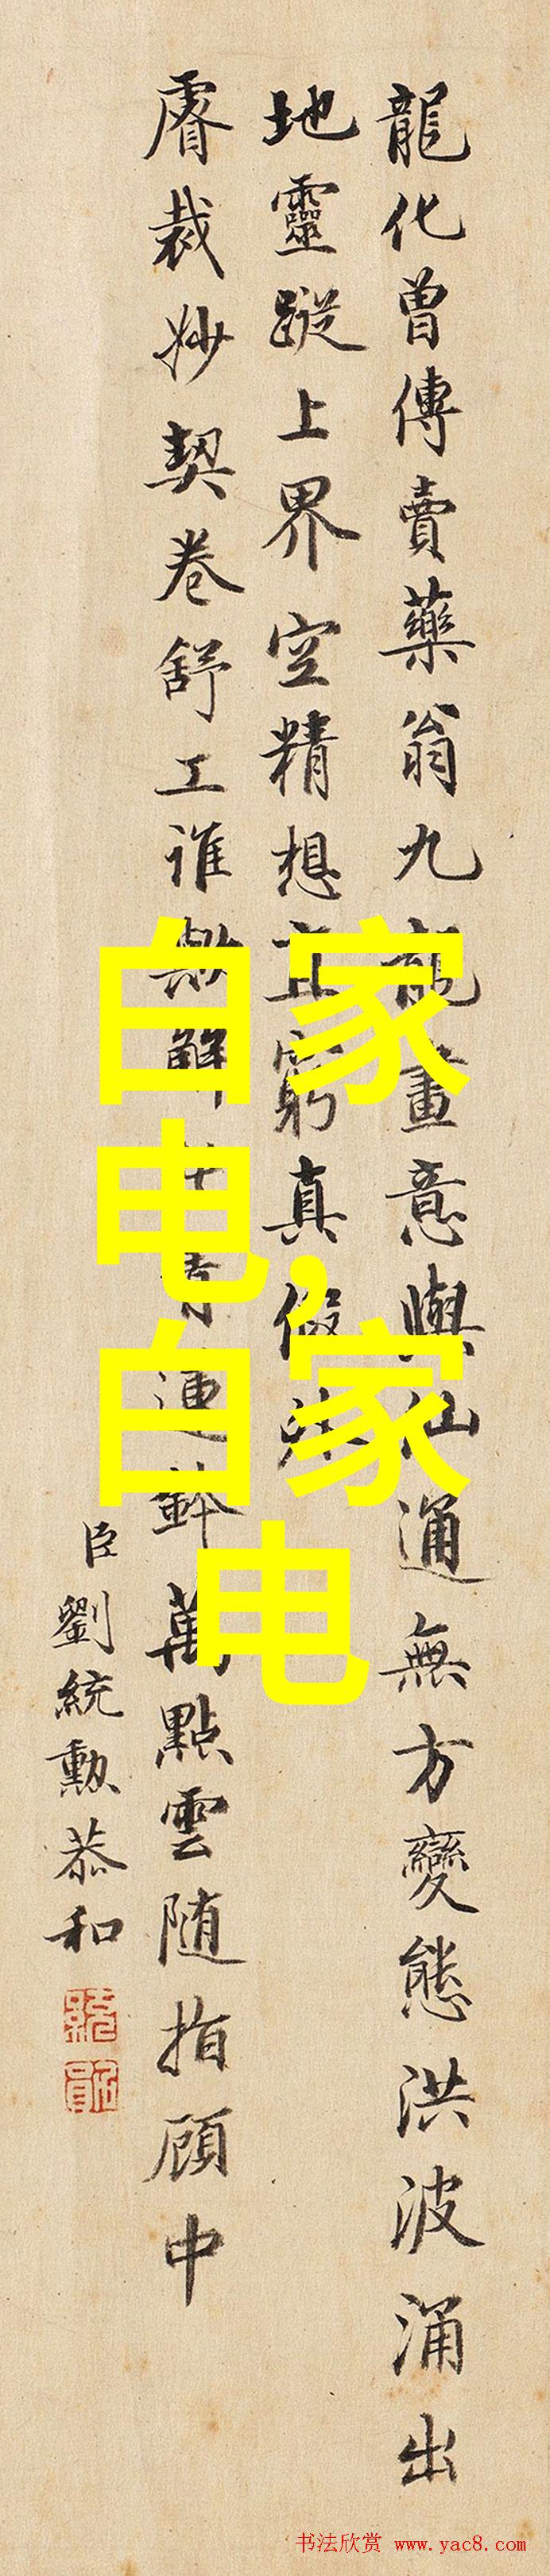 龍化曾傳賣藥翁九龍畫意與仙通無方變態洪波涌出
地靈蹤上界空精想直窮真
睿裁妙契卷舒工誰解鉢萬點雲随指顧中
臣劉統勳恭和
白家
电,
白家
电
书法欣赏 www.yac8.com